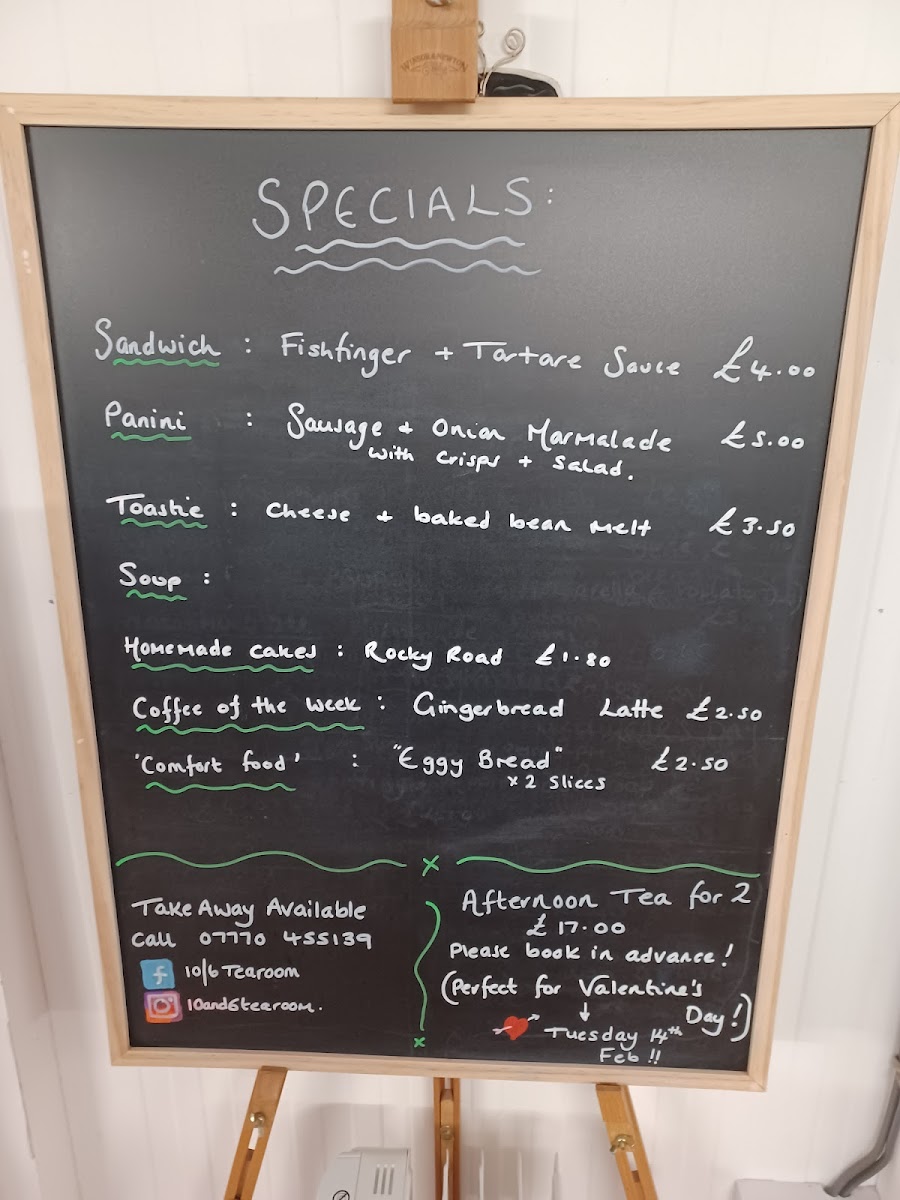 SPECIALS:
Sandwich : Fishfinger + Tartare Sauce £4.00
Panini : Sausage + Onion Marmalade £5.00
with crisps + salad.
Toastie : cheese + baked bean melt £3.50
Soup :
Homemade cakes : Rocky Road £1.80
Coffee of the week : Gingerbread Latte £2.50
'Comfort food' : "Eggy Bread" £2.50
x 2 slices
Take Away Available
Call 07770 455139
f 10/6 Tearoom
10and6tearoom.
Afternoon Tea for 2
£17.00
Please book in advance!
(Perfect for Valentine's
Day!)
Tuesday 14th
Feb!!